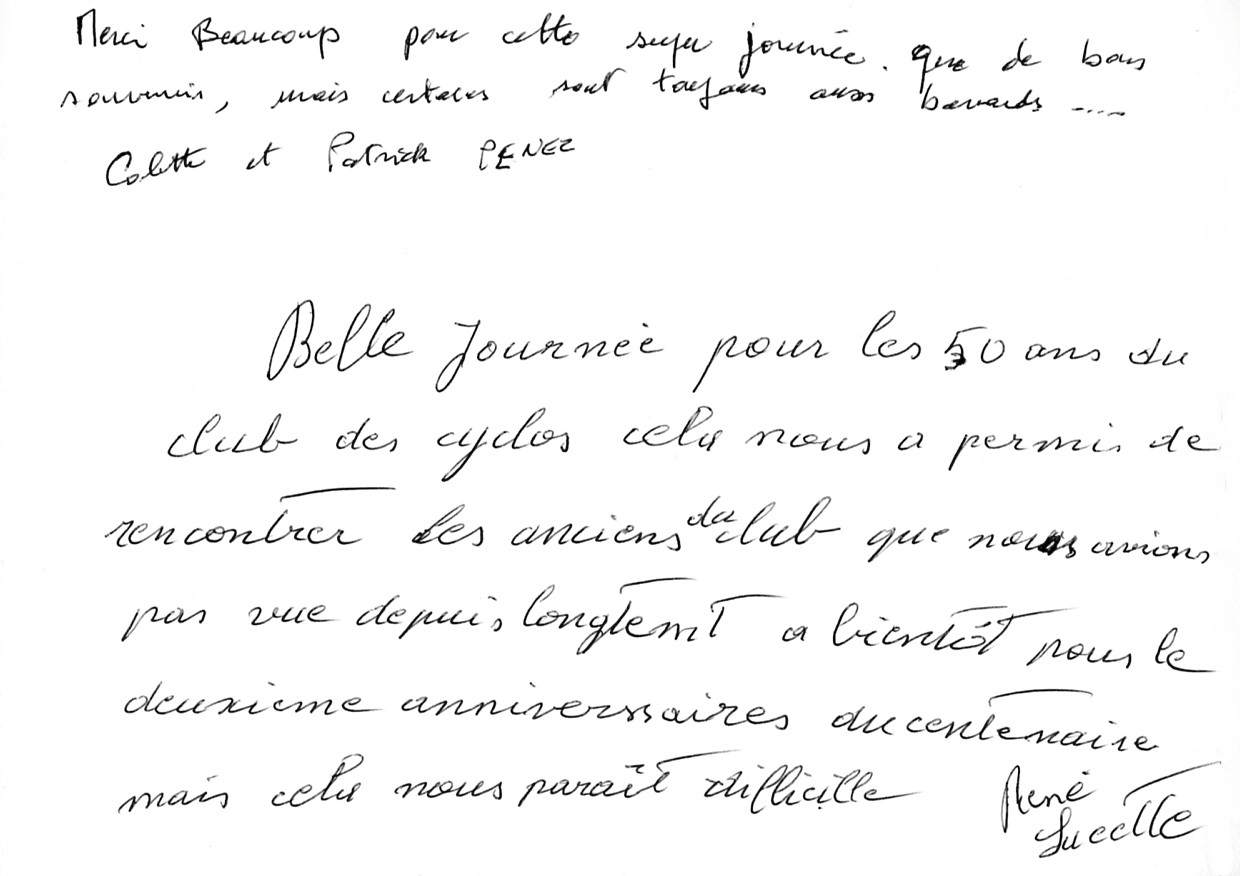 Merci Beaucoup pour cette super journée. que de bons
souvenirs, mais certaines sont toujours aussi bavards ....
Colette et Patrick PENEZ
Belle Journée pour les 50 ans du
club des cyclos cela nous a permis de
rencontrer les anciens du club que nous avions
pas vue depuis longtemt a bientôt pour le
deuxième anniverssaires du centenaire
mais cela nous paraît difficille
René
Lucette